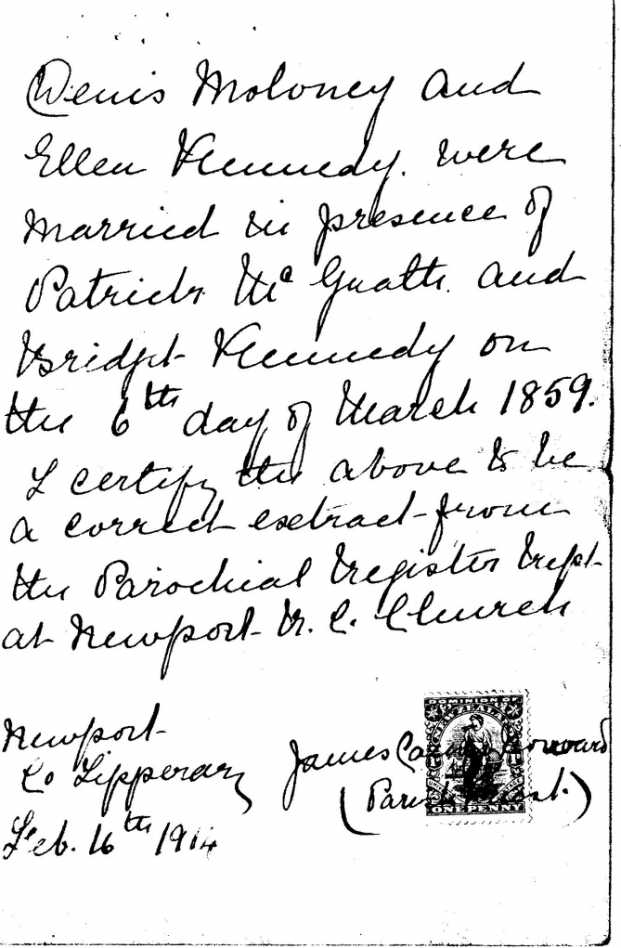 Denis Moloney and
Ellen Kennedy. were
married in presence of
Patrick Mc Grath. and
Bridget Kennedy on
the 6th day of March 1859.
I certify the above to be
a correct extract from
the Parochial Register kept
at Newport R. C. Church
Newport
Co Tipperary
Feb. 16th 1914
James
(Parish Priest.)
DOMINION OF
NEW ZEALAND
ONE PENNY